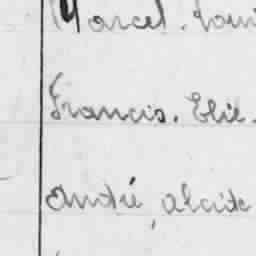 Marcel. Loui
Francis. Elie.
André, alcide